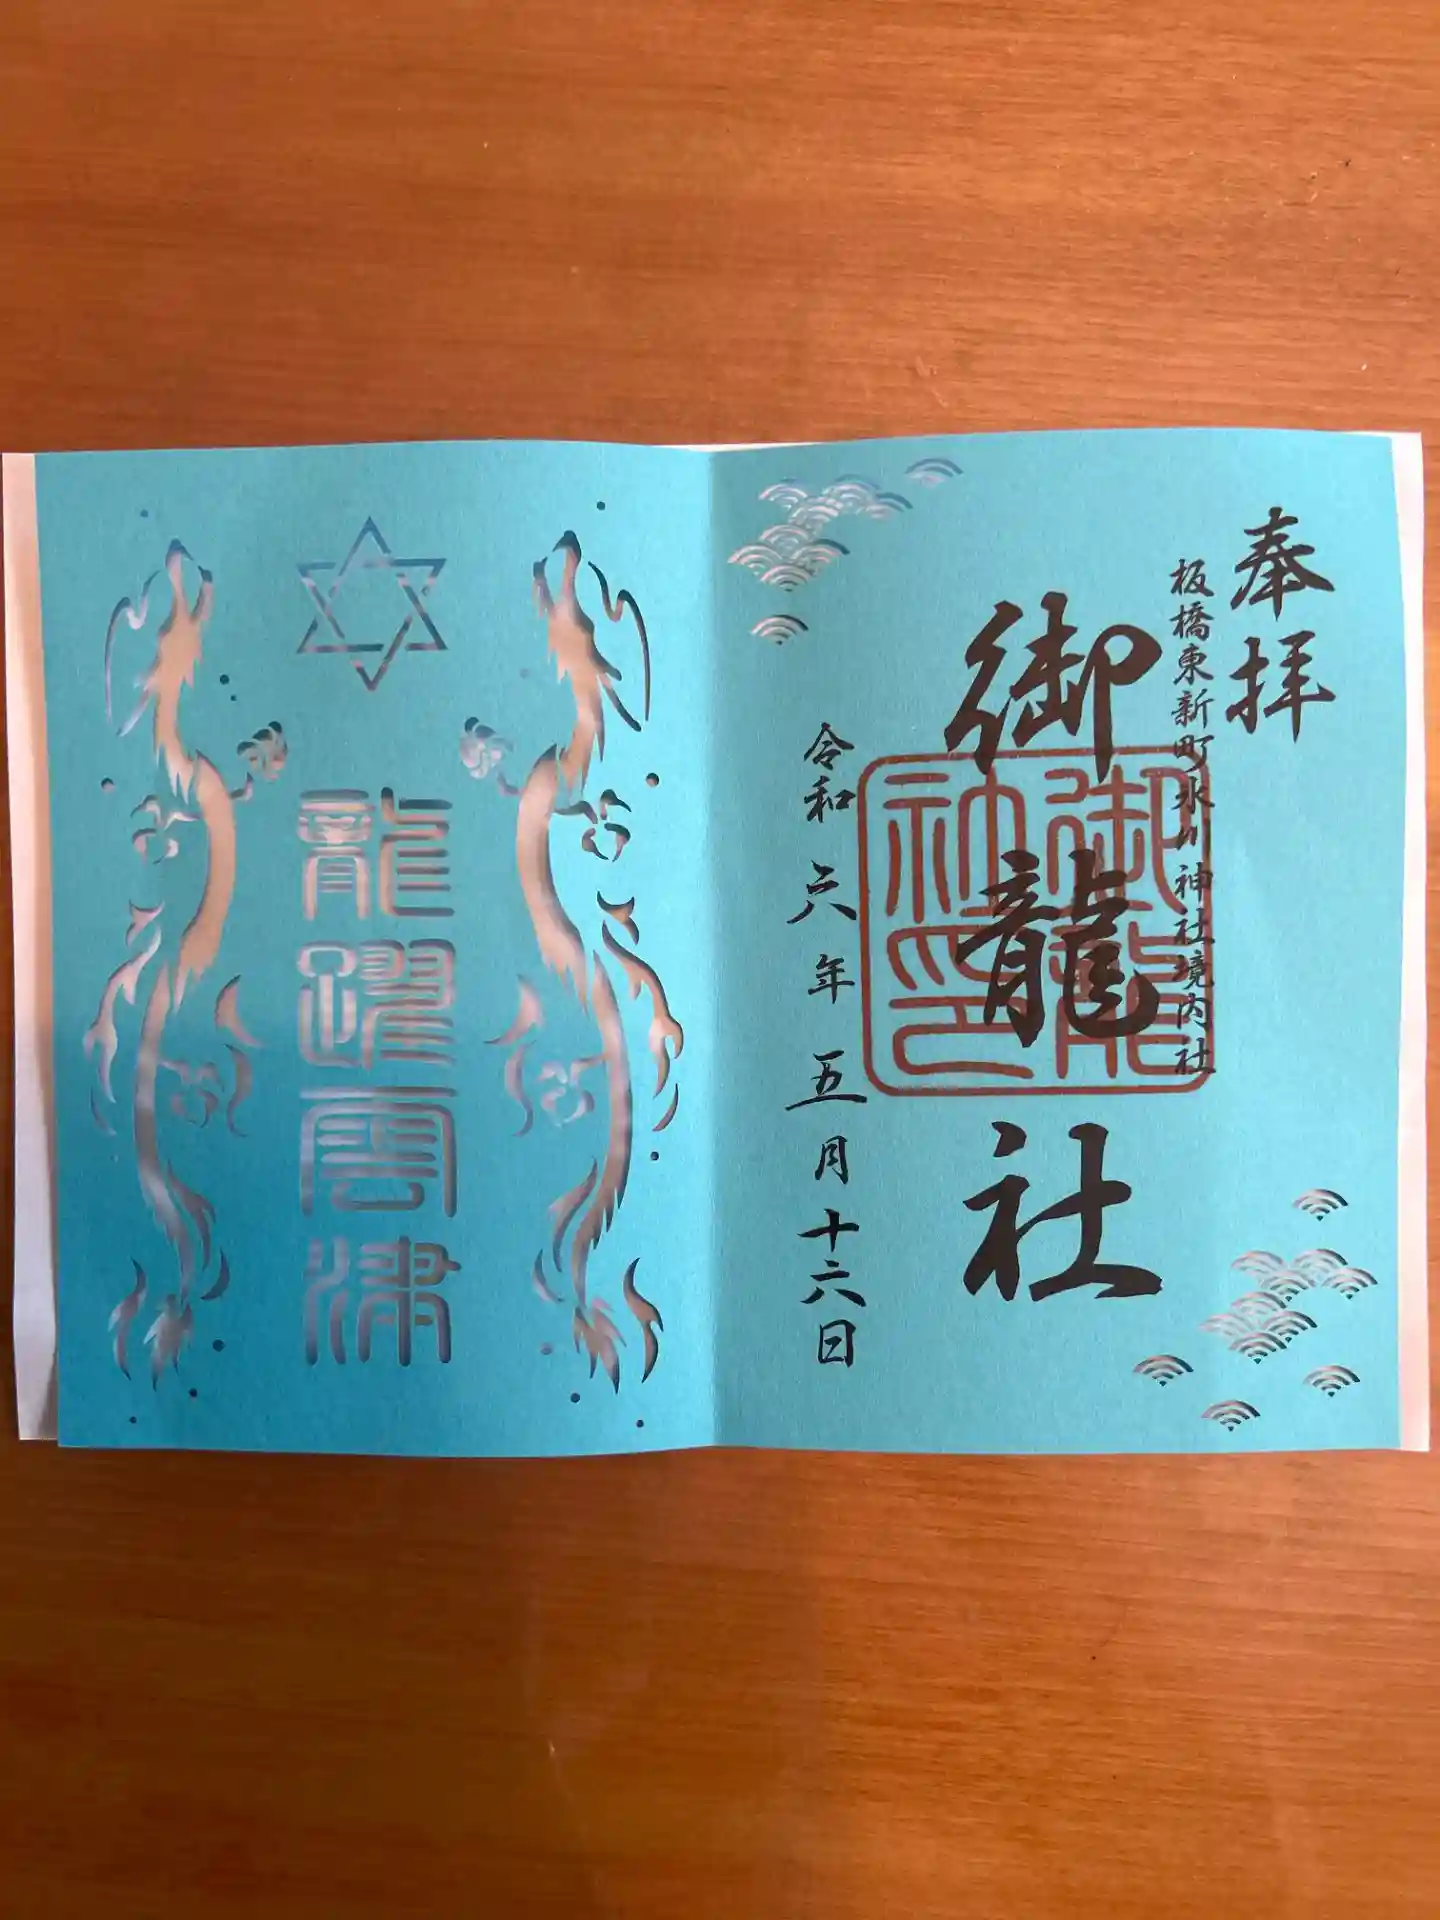 奉拝
板橋東新町氷川神社境内社
御龍社
御龍
社印
令和六年五月十六日
龍躍雲津